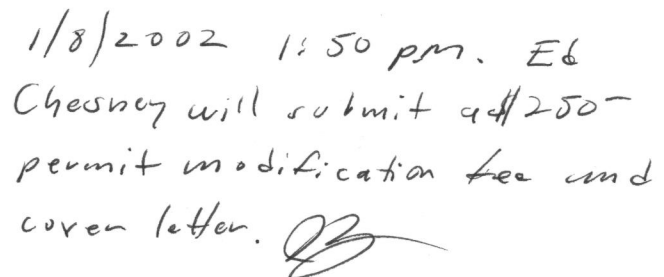 1/8/2002 1:50 pm. Ed
Chesney will submit a $250-
permit modification fee and
cover letter.